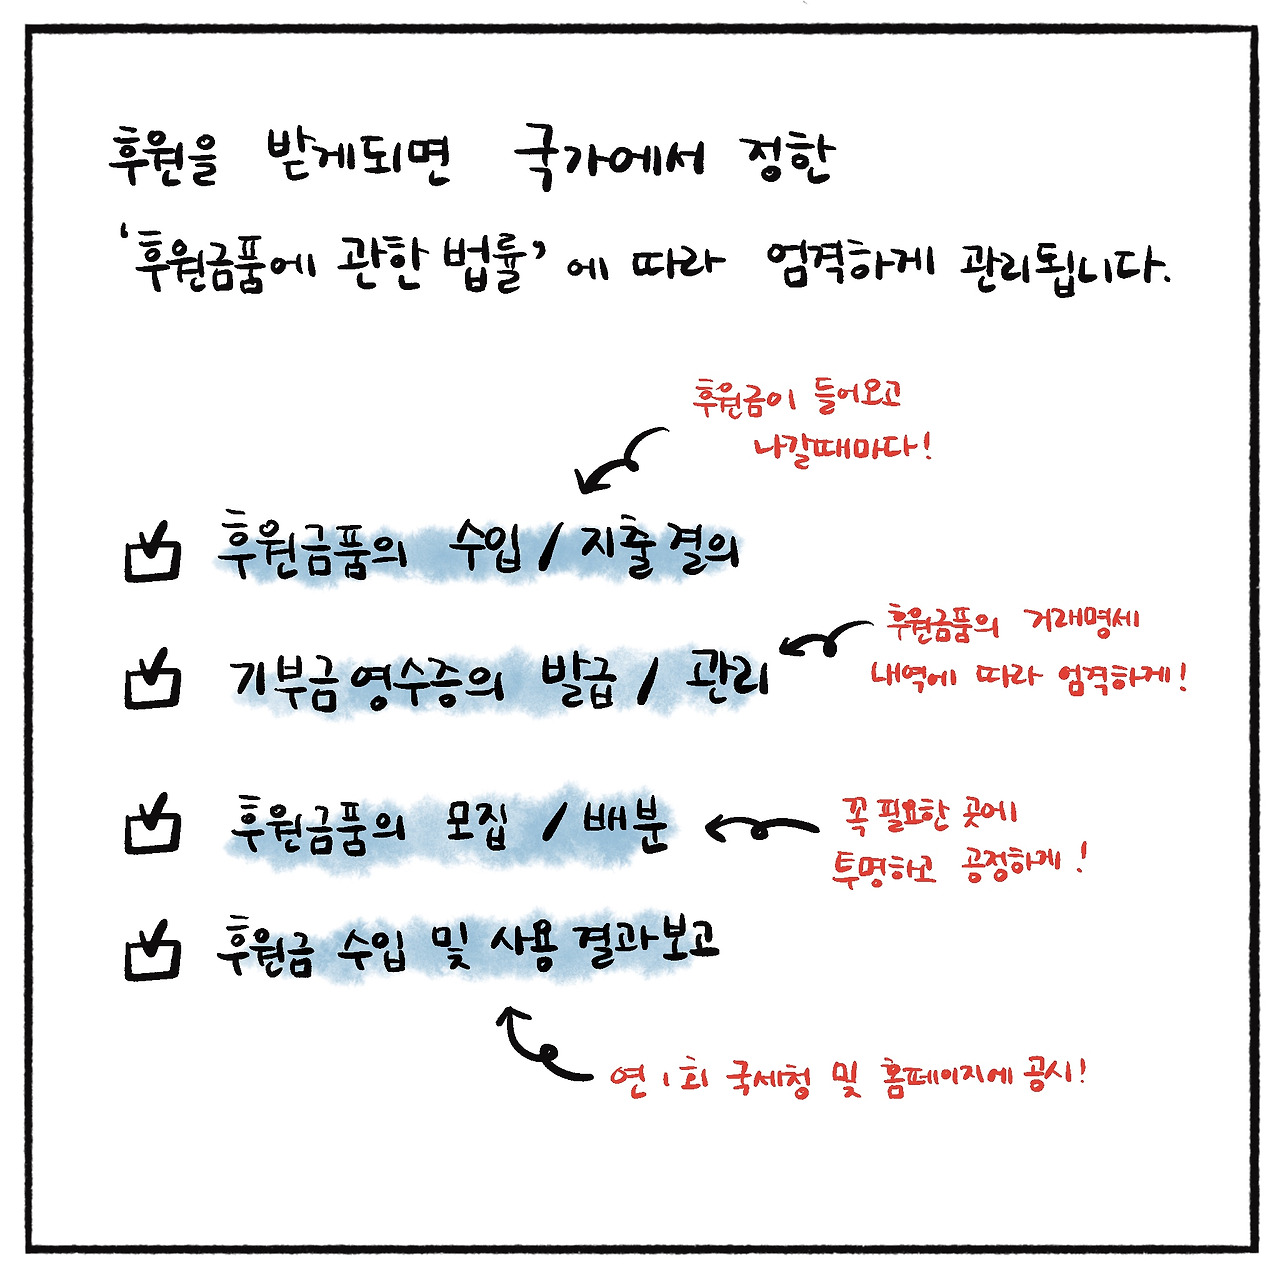 후원을 받게되면 국가에서 정한
'후원금품에 관한 법률'에 따라 엄격하게 관리됩니다.
후원금이 들어오고
나갈때마다!
후원금품의 수입 / 지출결의
후원금품의 거래명세
내역에 따라 엄격하게!
기부금영수증의 발급 / 관리
후원금품의 모집 / 배분
꼭 필요한 곳에
투명하고 공정하게!
후원금 수입 및 사용결과보고
연 1회 국세청 및 홈페이지에 공시!